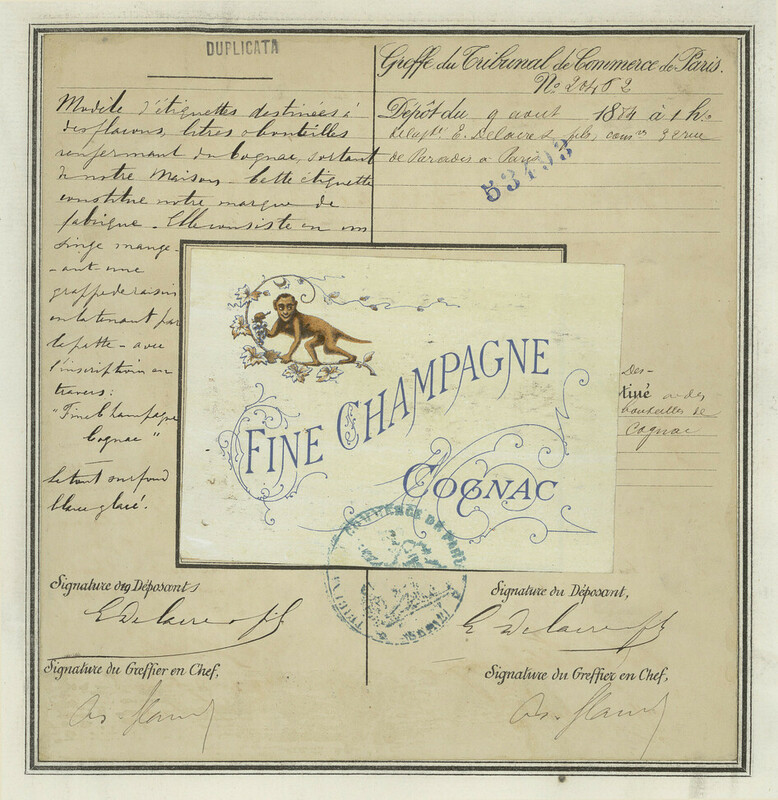 DUPLICATA
Modèle d'étiquettes destinées à
des flacons, litres o bouteilles
renfermant du Cognac, sortant
de notre Maison. Cette étiquette
constitue notre marque de
fabrique. Elle consiste en un
singe mange-
-ant une
grappe de raisin
en la tenant par
la patte - avec
l'inscription en
travers:
"Fine Champagne
Cognac"
Le tout sur fond
blanc glacé.
Greffe du Tribunal de Commerce de Paris.
No 20452
Dépôt du 9 aout 1884 à 1 h.
E. Delaire & fils, 92 rue
de Paradis à Paris
53493
Des-
tiné a des
bouteilles de
Cognac
FINE CHAMPAGNE
COGNAC
COMMERCE DE PARIS
Signature des Déposants
E Delaire & fils
Signature du Greffier en Chef,
Signature du Déposant,
E Delaire & fils
Signature du Greffier en Chef,